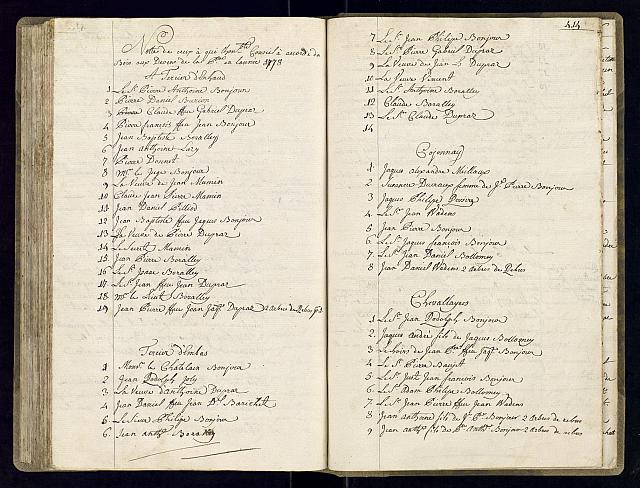 Notte de ceux à qui l'hon.ble Conseil à accordé du
Bois aux Devens de la Cottse en lannée 1778
A Terceir d'Enhaud
1 Le Sr Pierre Anthoine Bonjour
2 Pierre Daniel
3 Pierre Claude ffeu Gabriel Dupraz
4 Pierre francois ffeu Jean Bonjour
5 Jean Baptiste Boralley
6 Jean Anthoine Lary
7 Pierre Donnet
8 Mr le Juge Bonjour
9 La Veuve de Jean Mamin
10 Claude Jean Pierre Mamin
11 Jean Daniel
12 Jean Baptiste ffeu Jaques Bonjour
13 La Veuve de Pierre Dupraz
14 Le Mamin
15 Jean Pierre Boralley
16 Le Sr Isaac Boralley
17 Le Sr Jean ffeu Jean Dupraz
18 Mr le Lieut Boralley
19 Jean Pierre ffeu Jean Jaqs Dupraz 2 arbres de
Terceir d'Embas
1 Monsr le Châtelain Bonjour
2 Jean Rodolph Joly
3 La Veuve d'Anthoine Dupraz
4 Jean Daniel ffeu Jean Dl Barichet
5 Le Sieur Philipe Bonjour
6 Jean Anthe Boralley
414
7 Le Sr Jean Philipe Bonjour
8 Le Sr Pierre Gabriel Dupraz
9 La Veuve du Jean Dupraz
10 La Veuve Vincent
11 Le Sr Anthoine Boralley
12 Claude Boralley
13 Le Sr Claude Dupraz
14
Cojonnay
1 Jaques alexandre
2 Susanne femme de Jn Pierre Bonjour
3 Jaques Philipe
4 Le Sr Jean Wadens
5 Jean Pierre Bonjour
6 Le Sr Jaques francois Bonjour
7 Le Sr Jean Daniel Bollomey
8 Jean Daniel Wadens 2 arbres de Rebus
Chevallayres
1 Le Sr Jean Rodolph Bonjour
2 Jaques André fils de Jaques Bollomey
3 Le hoirs de Jean ffeu Jaqs Bonjour
4 Le Sr Pierre
5 Le Sr Just Jean francois Bonjour
6 Le Sr adam Philipe Bollomey
7 Le Sr Jean Pierre ffeu Jean Wadens
8 Jean anthoine fils de Bonjour 2 arbres de rebus
9 Jean anthe fils de Anthe Bonjour 2 arbres de rebus